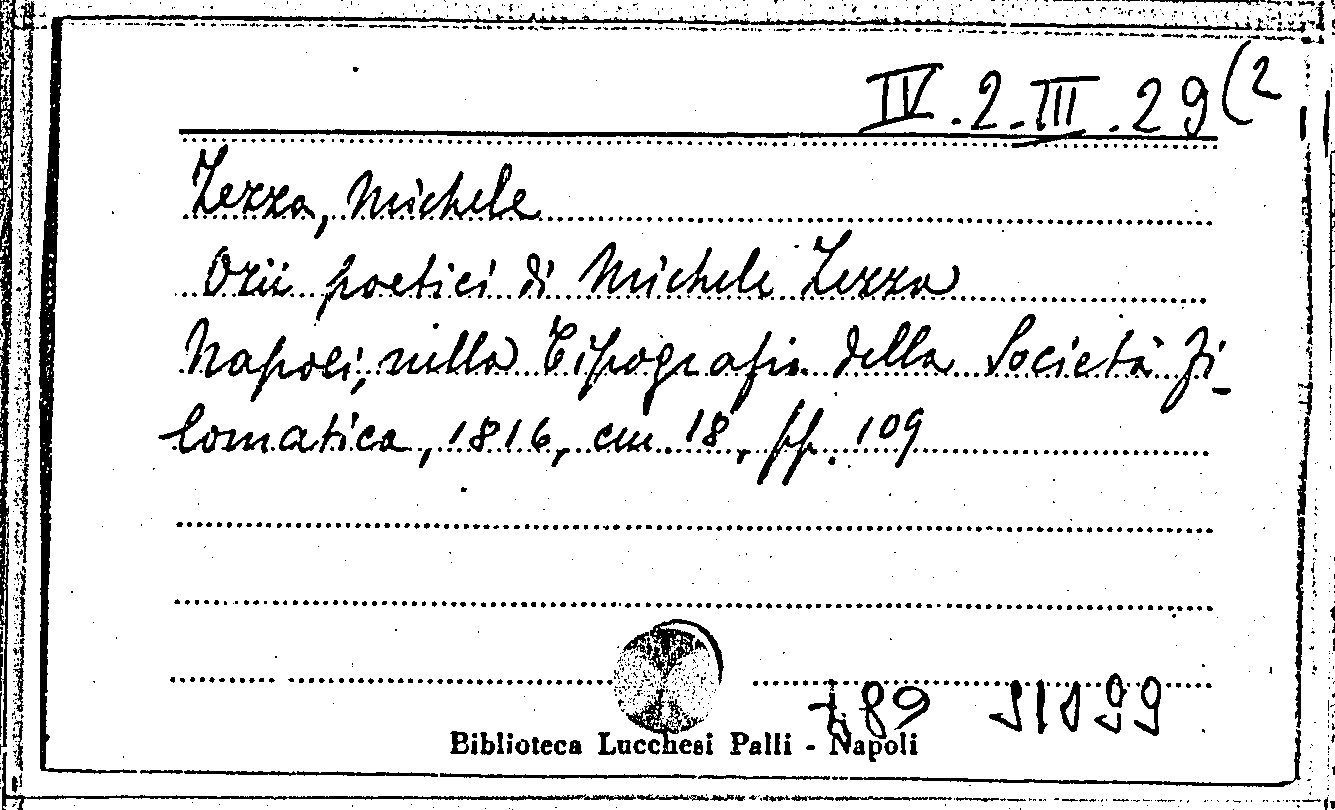 IV.2.III.29(2
Zezza, Michele
Ozii poetici di Michele Zezza
Napoli, nella Tipografia della Società Fi-
lomatica, 1816, cm. 18, pp. 109
789 91099
Biblioteca Lucchesi Palli - Napoli